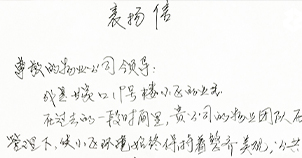 表扬信
尊敬的物业公司领导:
我是 1号楼小区的业主
在过去的一段时间里,贵公司的物业团队在
管理下,使小区环境始终保持着整齐美观,公共